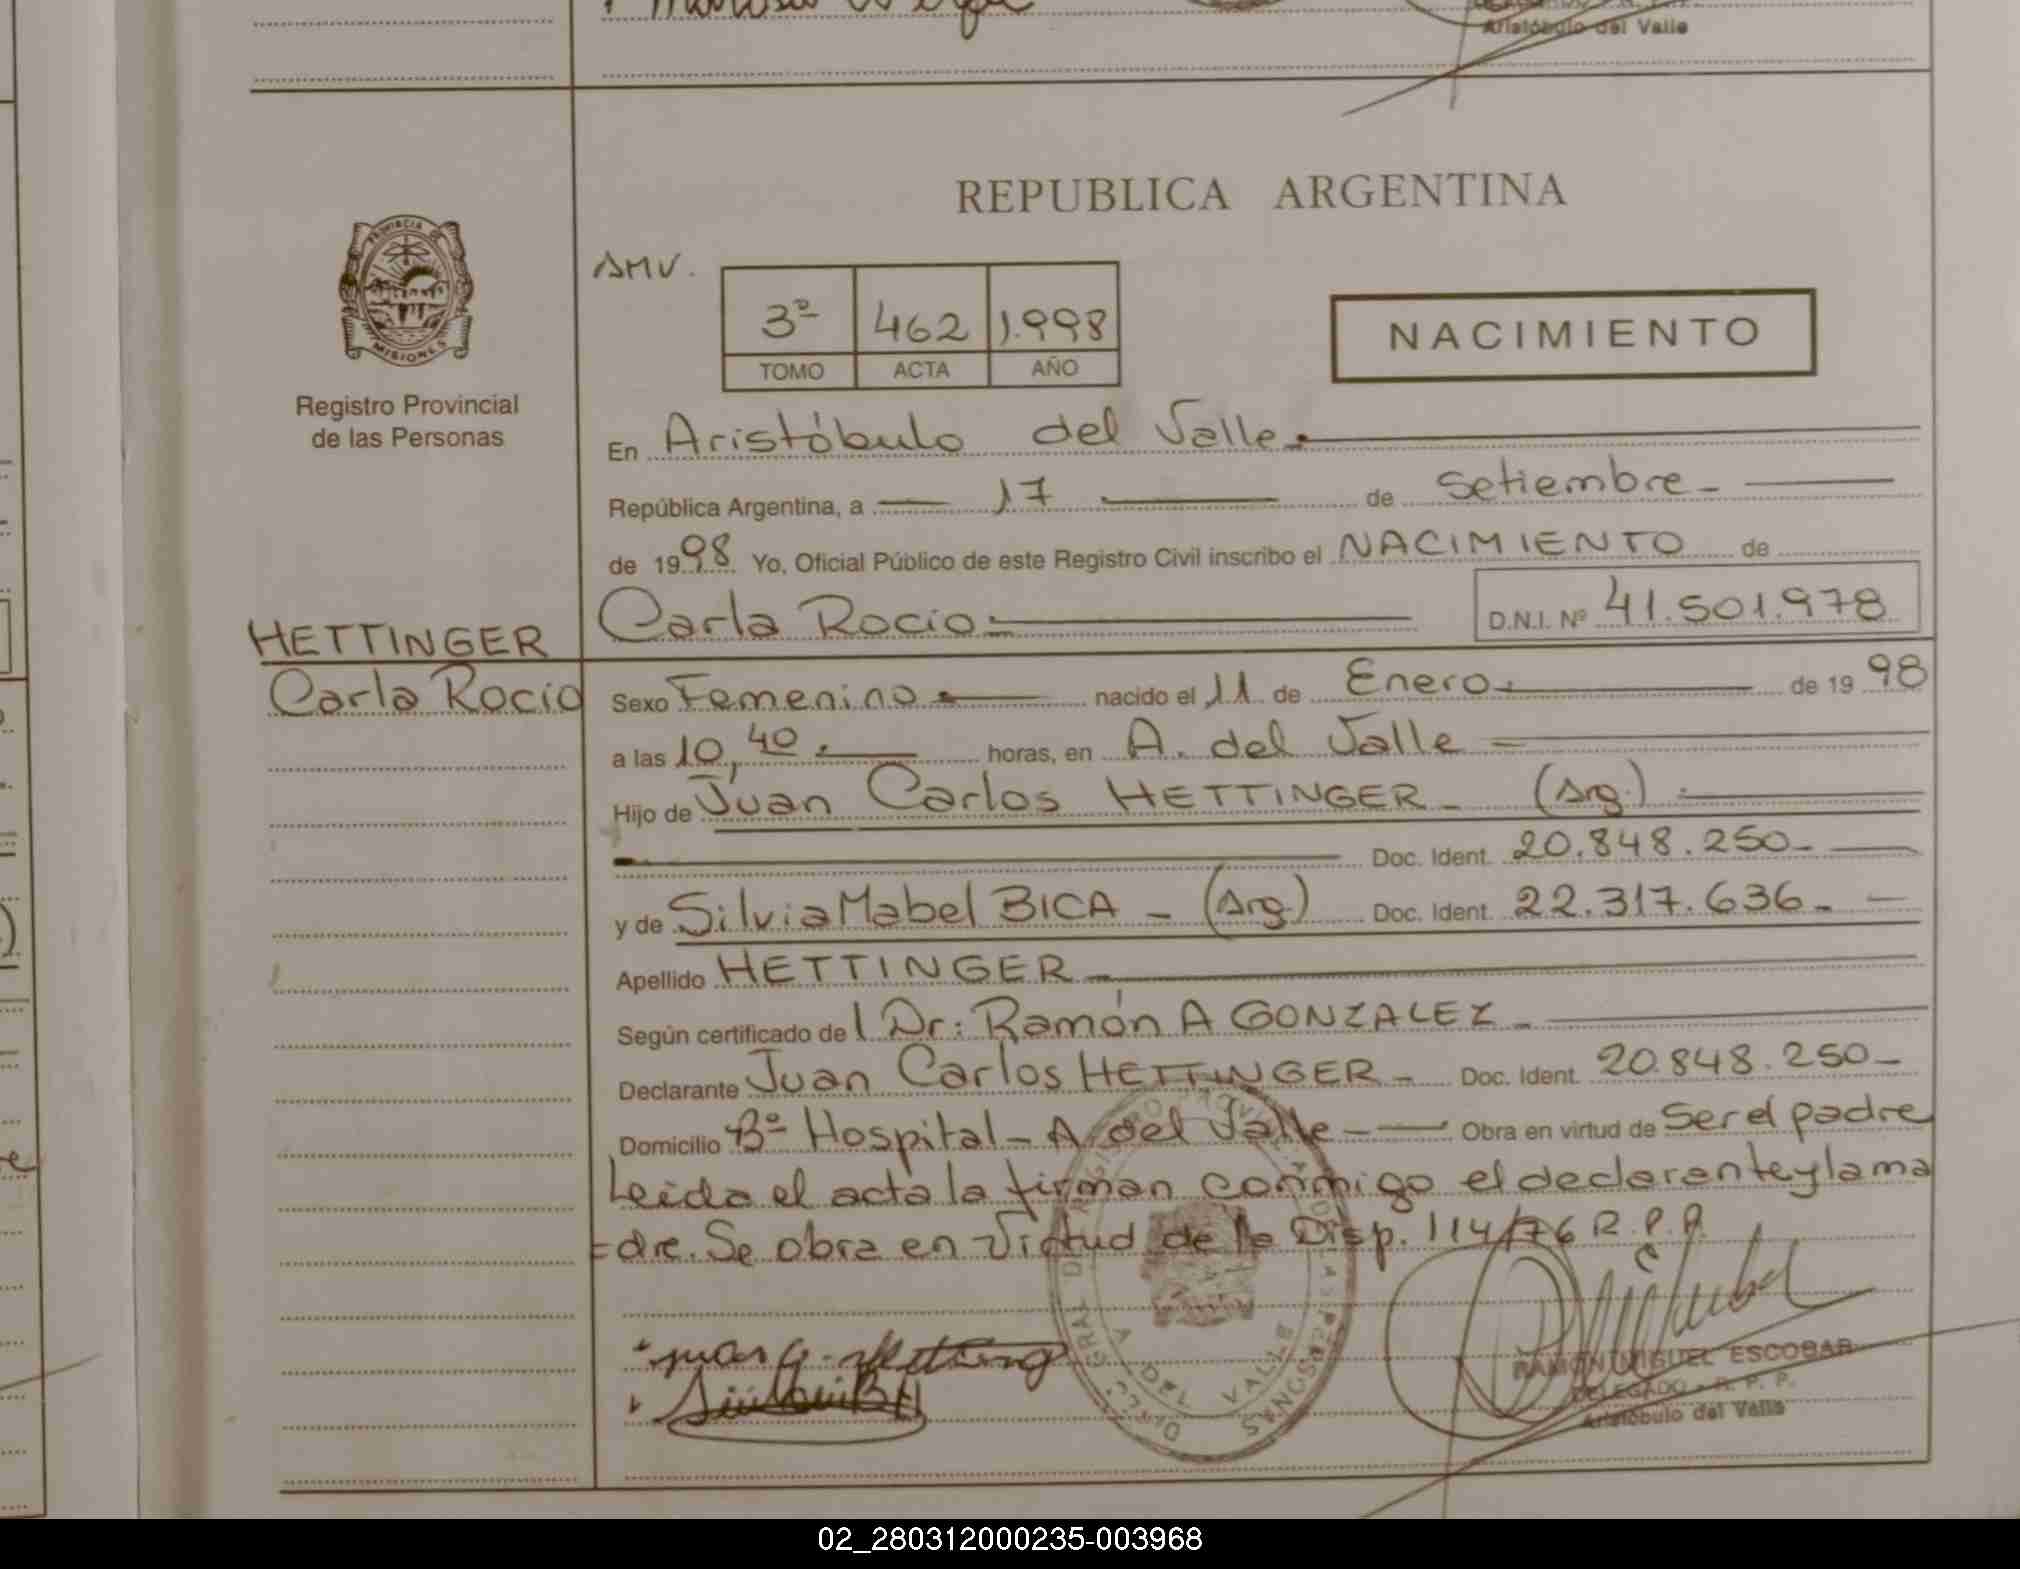 Aristóbulo del Valle
REPUBLICA ARGENTINA
PROVINCIA DE
MISIONES
AMV.
3º 462 1.998
TOMO ACTA AÑO
NACIMIENTO
Registro Provincial
de las Personas
En Aristóbulo del Valle
República Argentina, a 17 de Setiembre
de 1998. Yo, Oficial Público de este Registro Civil inscribo el NACIMIENTO de
Carla Rocio D.N.I. Nº 41.501.978
HETTINGER
Carla Rocio
Sexo Femenino nacido el 11 de Enero de 1998
a las 10,40 horas, en A. del Valle
Hijo de Juan Carlos HETTINGER (Arg.)
Doc. Ident. 20.848.250
y de Silvia Mabel BICA (Arg.) Doc. Ident. 22.317.636
Apellido HETTINGER
Según certificado del Dr: Ramón A GONZALEZ
Declarante Juan Carlos HETTINGER Doc. Ident. 20.848.250
Domicilio Bº Hospital - A. del Valle Obra en virtud de Ser el padre
Leida el acta la firman conmigo el declarante y la ma
=dre. Se obra en Virtud de la Disp. 114/76 R.P.P.
RAMON MIGUEL ESCOBAR
DELEGADO - R. P. P.
Aristóbulo del Valle
DIREC. GRAL. DE REGISTRO PROVINCIAL DE LAS PERSONAS
A. DEL VALLE
02_280312000235-003968